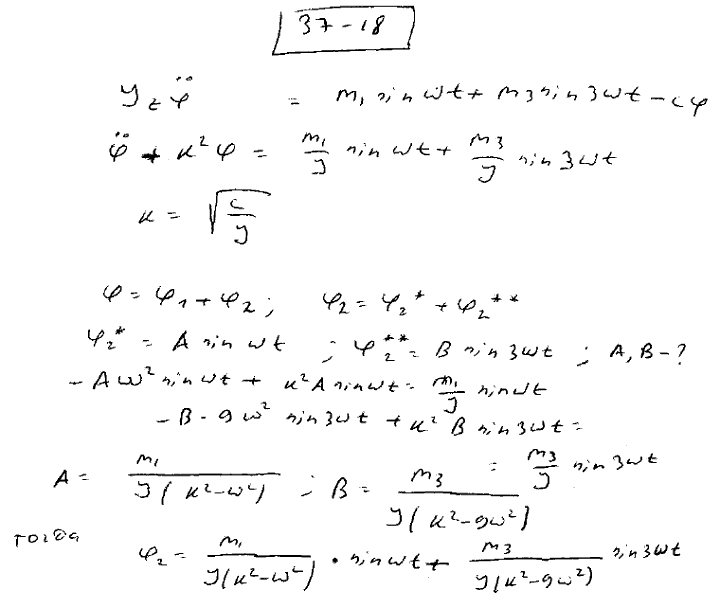 37-18
J_z φ̈ = m₁ sin ωt + m₃ sin 3ωt - cφ
φ̈ + k²φ = m₁/J sin ωt + m₃/J sin 3ωt
k = √(c/J)
φ = φ₁ + φ₂; φ₂ = φ₂* + φ₂**
φ₂* = A sin ωt ; φ₂** = B sin 3ωt ; A, B - ?
- Aω² sin ωt + k² A sin ωt = m₁/J sin ωt
- B · 9ω² sin 3ωt + k² B sin 3ωt =
= m₃/J sin 3ωt
A = m₁/J(k²-ω²) ; B = m₃/J(k²-9ω²)
тогда φ₂ = m₁/J(k²-ω²) · sin ωt + m₃/J(k²-9ω²) sin 3ωt